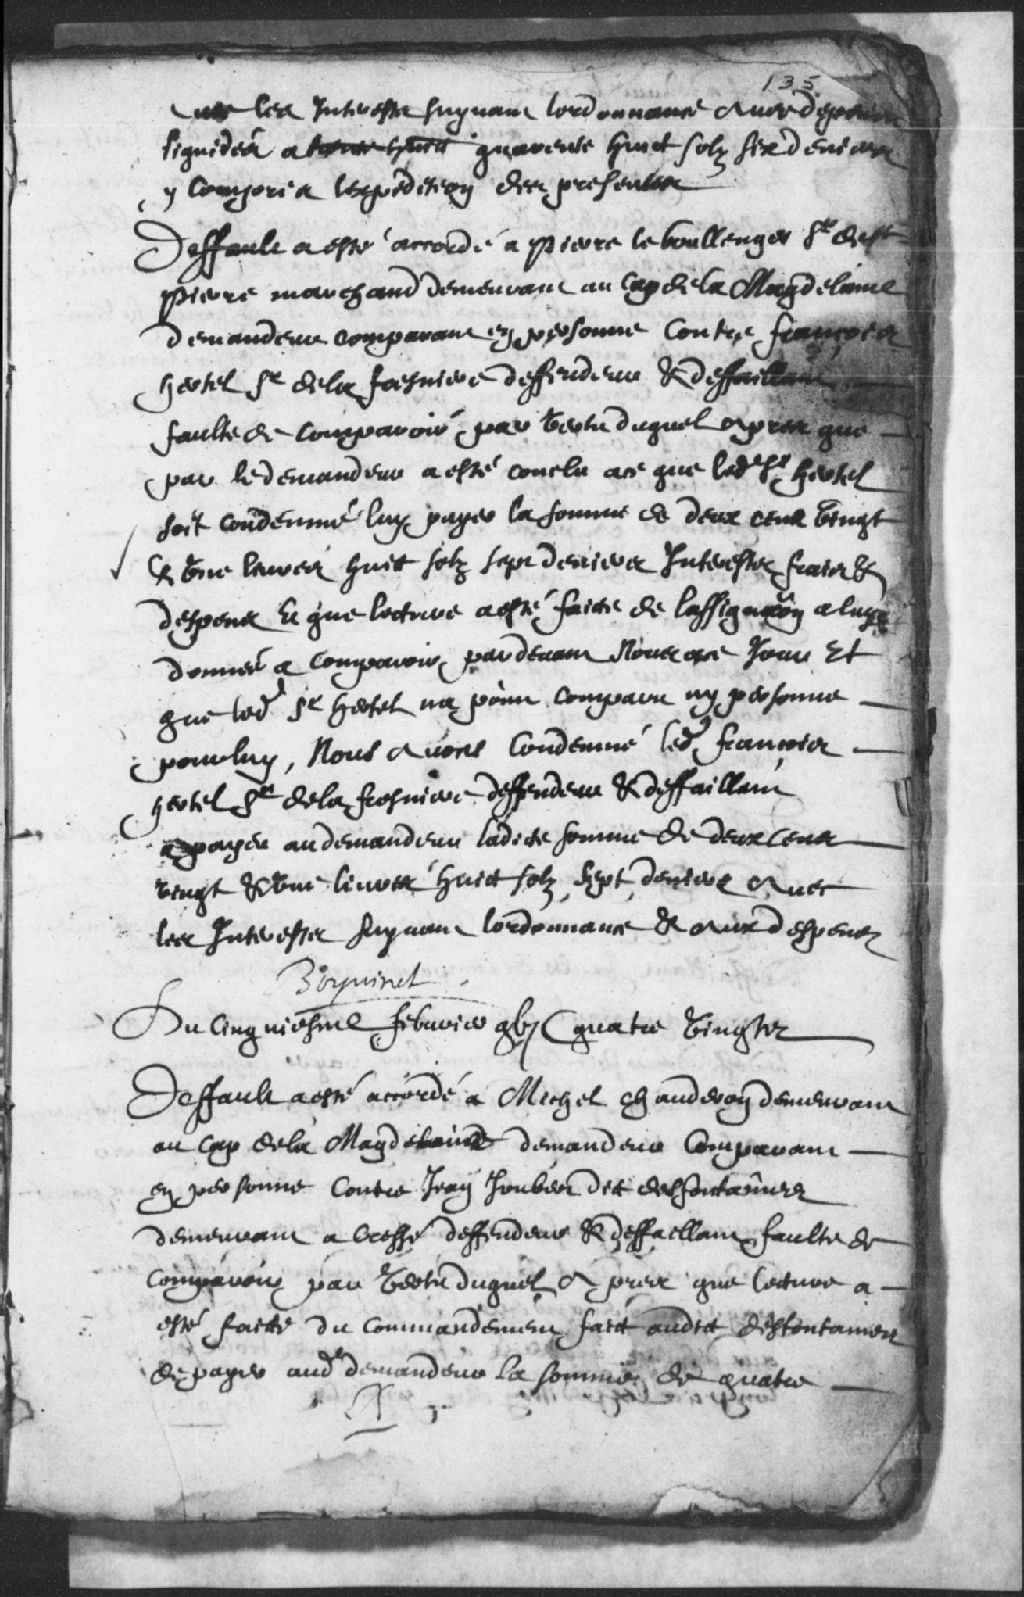 135
avec les Interestz suyvant lordonnance & aux despens
liquidés a trente huict quarente huict solz six deniers
y compris lexpedition des presentes
Deffault a esté accordé a Pierre le boullenger Sr de St
Pierre marchand demeurant au Cap de la Magdelaine
demandeur comparant en personne contre françois
hertel Sr de la fresniere deffendeur & deffaillant
faulte de comparoir par vertu duquel apres que
par le demandeur a esté conclu a ce que led. Sr hertel
soit condemné luy payer la somme de deux cens vingt
& une livres huict solz sept deniers Interestz fraiz &
despens Et que lecture a esté faicte de lassignaon a luy
donnée a comparoir pardevant Nous a ce Jour Et
que led. Sr hertel na point comparu ny personne
pour luy, Nous avons condemné led. françois
hertel Sr de la fresniere deffendeur & deffaillant
a payer au demandeur ladicte somme de deux cens
vingt & une livres huict solz sept deniers avec
les Interestz suyvant lordonnance & aux despens
Boyvinet
Du cinquiesme febvrier gbjC quatre vingtz
Deffault a esté accordé a Michel chauderon demeurant
au Cap de la Magdelaine demandeur Comparant
en personne Contre Jean Joubert dit desfontaines
demeurant a Cressé deffendeur & deffaillant faulte de
Comparoir par vertu duquel apres que lecture a
esté faicte du Commandement faict audit desfontaines
de payer aud. demandeur la somme de quatre